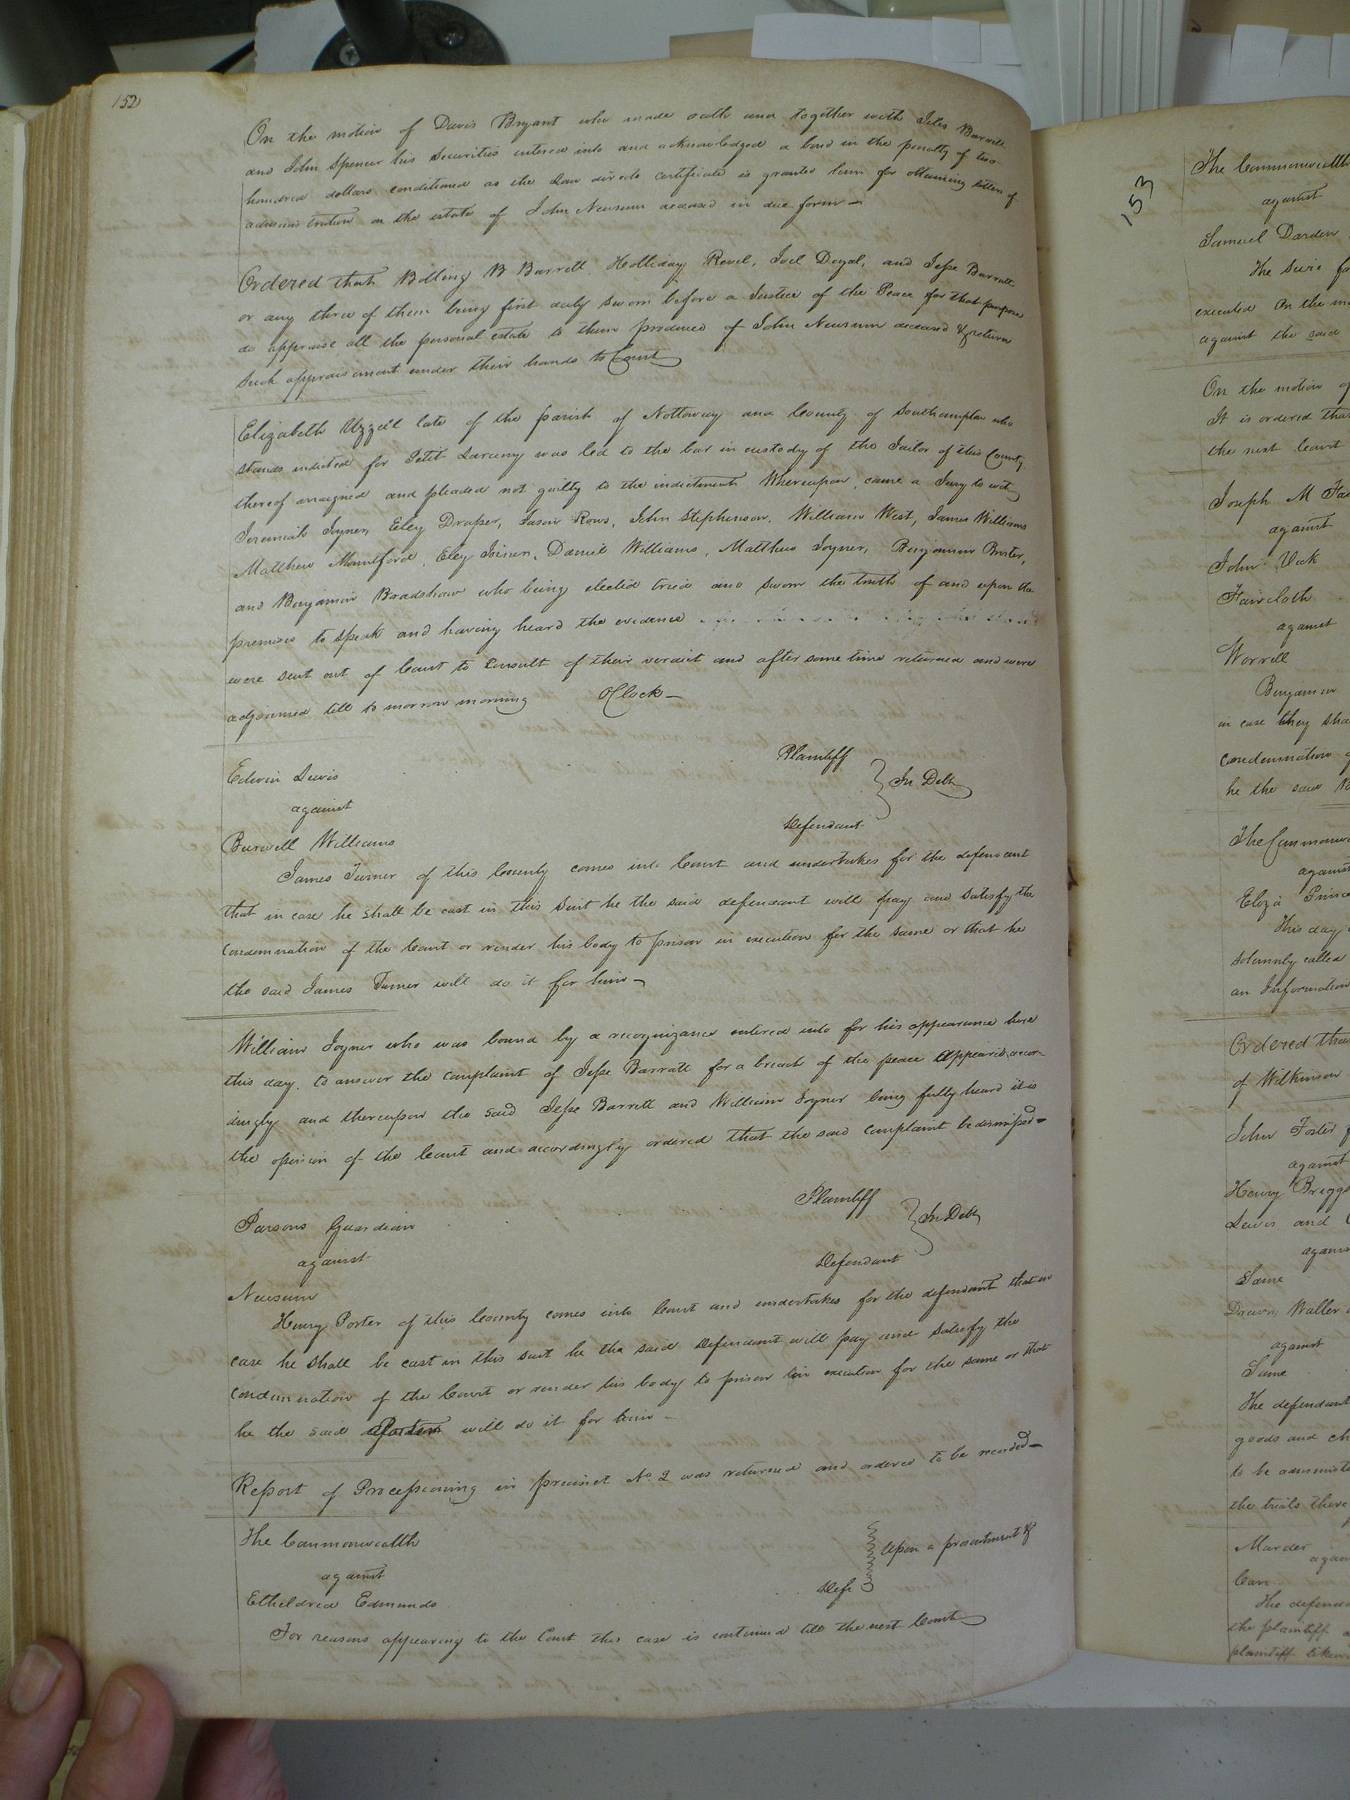 152
On the motion of Davis Bryant who made oath and together with Jiles Barrett
and John Spencer his securities entered into and acknowledged a bond in the penalty of two
hundred dollars conditioned as the Law directs certificate is granted him for obtaining letters of
administration on the estate of John Newsum deceased in due form —
Ordered that Bolling B Barrett, Holliday Revel, Joel Doyal, and Jesse Barratt
or any three of them being first duly sworn before a Justice of the Peace for that purpose
do appraise all the personal estate to them produced of John Newsum deceased & return
such appraisement under their hands to Court
Elizabeth Uzzell late of the parish of Nottoway and County of Southampton who
stands indicted for Petit Larceny was led to the bar in custody of the Jailor of this County
thereof arraigned and pleaded not guilty to the indictment Whereupon, came a Jury to wit,
Jeremiah Joyner, Eley Draper, Jason Rows, John Stephenson, William West, James Williams
Matthew Mountford, Eley Joiner, Daniel Williams, Matthew Joyner, Benjamin
and Benjamin Bradshaw who being elected tried and sworn the truth of and upon the
premises to speak and having heard the evidence
were sent out of Court to consult of their verdict and after some time returned and were
adjourned till to morrow morning OClock —
Edwin Lewis Plaintiff
against In Debt
Burwell Williams Defendant
James Turner of this County comes into Court and undertakes for the defendant
that in case he shall be cast in this suit he the said defendant will pay and satisfy the
condemnation of the Court or render his body to prison in execution for the same or that he
the said James Turner will do it for him —
William Joyner who was bound by a recognizance entered into for his appearance here
this day, to answer the complaint of Jesse Barratt for a breach of the peace appeared accor-
dingly and thereupon the said Jesse Barrett and William Joyner being fully heard it is
the opinion of the Court and accordingly ordered that the said complaint be dismissed —
Parsons Guardian Plaintiff
against In Debt
Newsum Defendant
Henry Porter of this County comes into Court and undertakes for the defendant that in
case he shall be cast in this suit he the said Defendant will pay and satisfy the
condemnation of the Court or render his body to prison in execution for the same or that
he the said Porter will do it for him —
Report of Processioning in precinct No. 2 was returned and ordered to be recorded —
The Commonwealth
against Upon a presentment &
Etheldred Edmunds Deft
For reasons appearing to the Court this case is continued till the next Court
153
The Commonwealth
against
Samuel Darden
The
executed On the
against the said
On the motion of
It is ordered that
the next Court
Joseph M
against
John Vick
Faircloth
against
Worrell
Benjamin
in case they sha
condemnation of
he the said
The Commonwe
against
Eliza
This day
solemnly called
an Information
Ordered that
of Wilkinson
John Foster
against
Henry Briggs
Lewis and
against
Same
Drewry, Waller
against
Same
The defendant
goods and ch
to be administe
the trials there
Marder
against
Carr
The defenda
the plaintiff
plaintiff taken